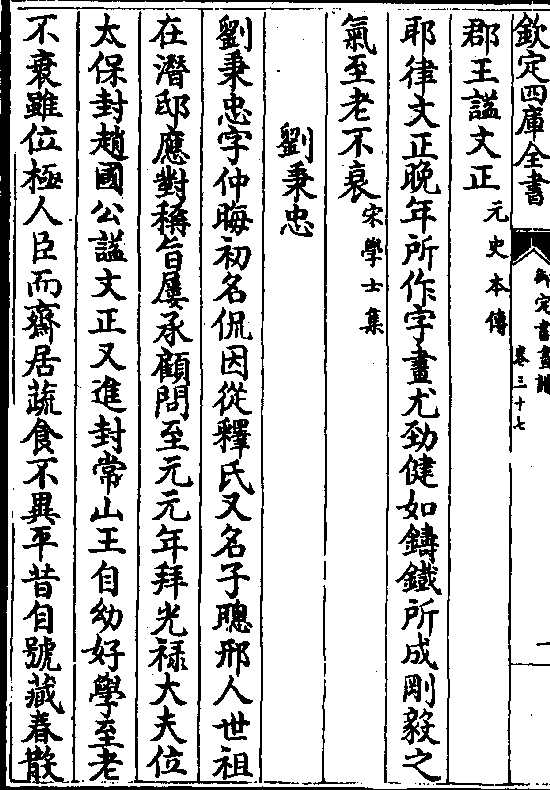 欽定四庫全書
御定書畫譜
卷三十七
一
郡王諡文正元史本傳
耶律文正晚年所作字畫尤勁健如鑄鐵所成剛毅之
氣至老不衰宋學士集
劉秉忠
劉秉忠字仲晦初名侃因從釋氏又名子聰邢人世祖
在潛邸應對稱旨屢承顧問至元元年拜光祿大夫位
太保封趙國公諡文正又進封常山王自幼好學至老
不衰雖位極人臣而齋居蔬食不異平昔自號藏春散